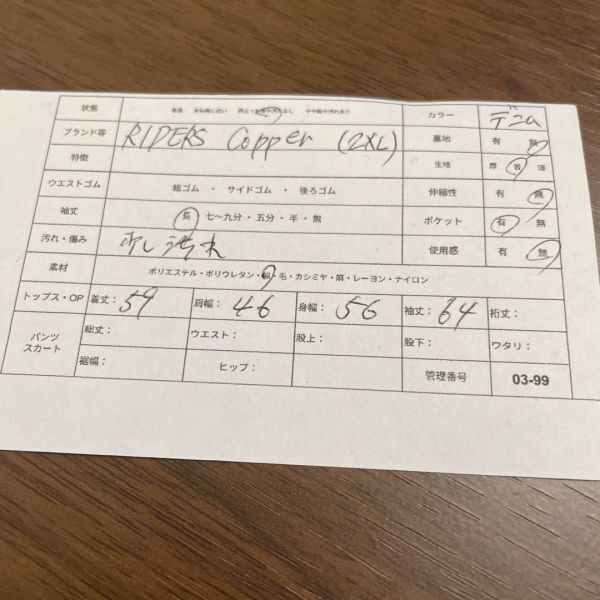 状態 新品 未使用に近い 目立った傷や汚れなし やや傷や汚れあり カラー デニム
ブランド等 RIDERS Copper (2XL) 裏地 有 無
特徴 生地 厚 普 薄
ウエストゴム 総ゴム・サイドゴム・後ろゴム 伸縮性 有 無
袖丈 長・七〜九分・五分・半・無 ポケット 有 無
汚れ・傷み 汚れ 使用感 有 無
素材 ポリエステル・ポリウレタン・綿・毛・カシミヤ・麻・レーヨン・ナイロン
トップス・OP 着丈: 59 肩幅: 46 身幅: 56 袖丈: 64 裄丈:
パンツ スカート 総丈: ウエスト: 股上: 股下: ワタリ:
裾幅: ヒップ: 管理番号 03-99